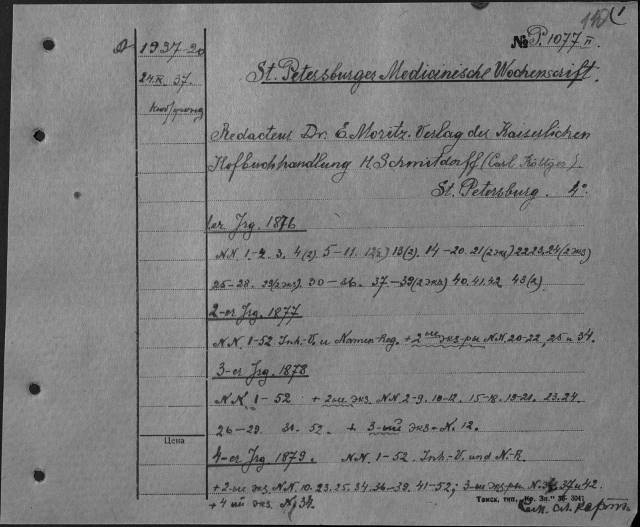 1937-20
№ P. 1077 II.
24.X. 37.
St. Petersburger Medicinische Wochenschrift.
Redacteur Dr. E. Moritz. Verlag der Kaiserlichen
Hofbuchhandlung H. Schmitzdorff (Carl Röttger).
St. Petersburg. 4°.
1-er Jrg. 1876
NN 1-2. 3. 4(2). 5-11. 13(2). 14-20. 21(2 экз) 22.23.24(2 экз)
25-28. 29(2 экз). 30-36. 37-39(2 экз) 40.41.42 43(2)
2-er Jrg. 1877
NN. 1-52 Inh.-V. u Namen-Reg. + 2ые экз-ры NN. 20-22, 25 и 34.
3-er Jrg. 1878
NN. 1-52 + 2-ые экз. NN 2-9. 10-12. 15-18. 19-21. 23.24.
26-29. 31. 52. + 3-ий экз-р N. 12.
4-er Jrg. 1879. NN. 1-52. Inh.-V. und N.-R.
Цена
+ 2-ые экз. NN. 10. 23. 25. 34. 36-39. 41-52; 3-ие экз-ры N. 37 и 42.
+ 4ый экз. N. 34.
Томск, тип. „Кр. Зн." 36- 3041